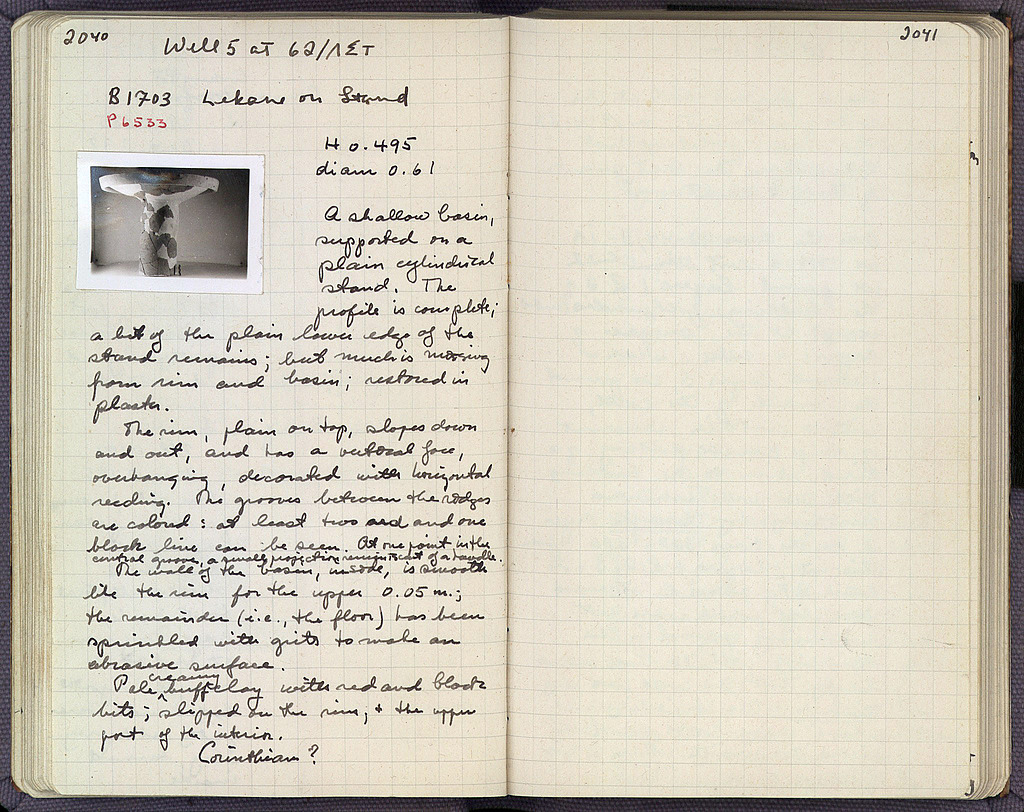 2040
Well 5 at 62/ΛΣΤ
B1703 Lekane on Stand
P6533
H 0.495
diam 0.61
A shallow basin,
supported on a
plain cylindrical
stand. The
profile is complete;
a bit of the plain lower edge of the
stand remains; but much is missing
from rim and basin; restored in
plaster.
The rim, plain on top, slopes down
and out, and has a vertical face,
overhanging, decorated with horizontal
reeding. The grooves between the ridges
are colored: at least two red and one
black line can be seen. At one point in the
central groove, a small projection reminiscent of a handle.
The wall of the basin, inside, is smooth
like the rim for the upper 0.05 m.;
the remainder (i.e., the floor) has been
sprinkled with grits to make an
abrasive surface.
Pale creamy buff clay with red and black
bits; slipped on the rim, + the upper
part of the interior.
Corinthian?
2041